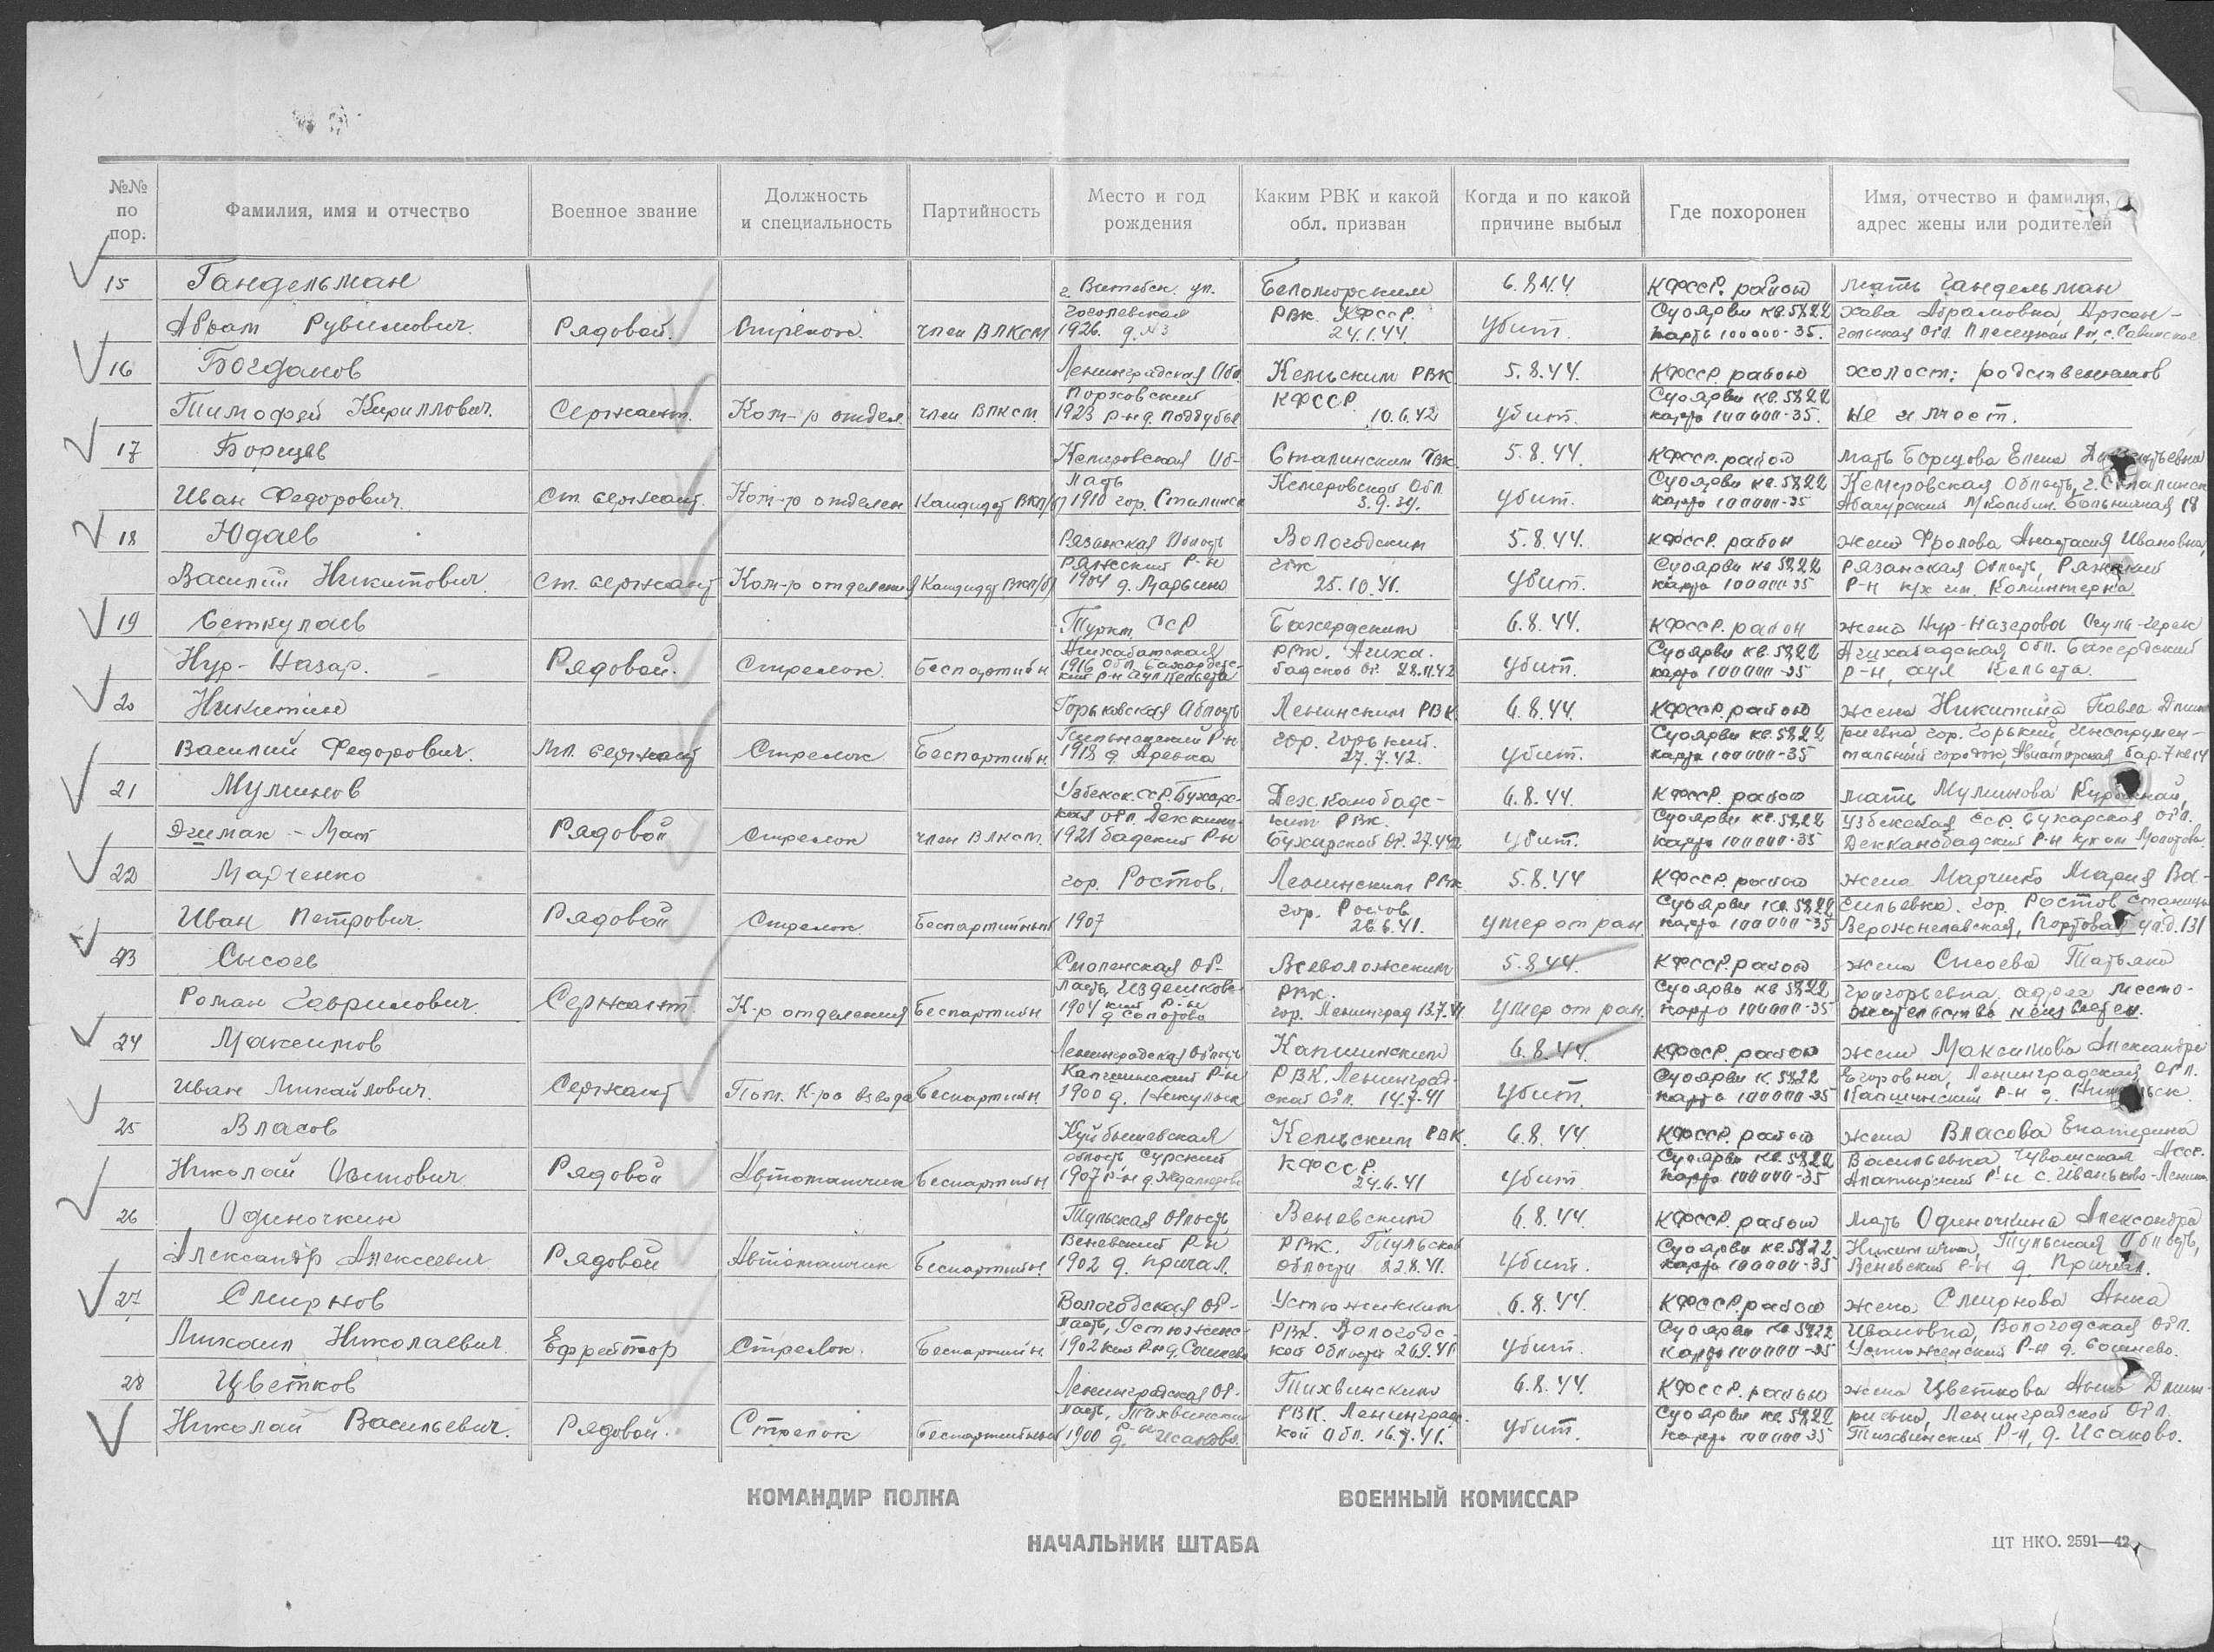 №№ по пор. Фамилия, имя и отчество Военное звание Должность и специальность Партийность Место и год рождения Каким РВК и какой обл. призван Когда и по какой причине выбыл Где похоронен Имя, отчество и фамилия, адрес жены или родителей
15 Гандельман г. Витебск ул. Беломорским 6.8.44 КФССР. район мать Гандельман
Гоголевская РВК КФССР. Суоярви кв. 5822 Хава Абрамовна, Архан-
Абрам Рувимович. Рядовой. Стрелок. член ВЛКСМ 1926. д. №3 24.1.44 убит. карта 100000-35. гельская обл. Плесецкий Р-н, с. Савинское
16 Богданов Ленинградская Обл. Кемским РВК 5.8.44. КФССР. район холост: родственников
Порховский КФССР Суоярви кв. 5822
Тимофей Кириллович. Сержант. Ком-р отдел. член ВЛКСМ. 1923 р-н д. Поддубье 10.6.42 убит. карта 100000-35. не имеет.
17 Борщев Кемеровская Об- Сталинским РВК 5.8.44. КФССР. район мать Борщова Елена
ласть Кемеровской Обл Суоярви кв. 5822 Кемеровская Область, г. Сталинск
Иван Федорович. Ст. сержант. Ком-р отделен Кандидат ВКП/б/ 1910 гор. Сталинск 3.9.39. убит. карта 100000-35 Абагурский л/комбин. Больничная 18
18 Юдаев Рязанская Область Вологодским 5.8.44. КФССР. район жена Фролова Анастасия Ивановна,
Ряжский Р-н ГВК Суоярви кв 5822 Рязанская Область, Ряжский
Василий Никитович Ст. сержант Ком-р отделения Кандидат ВКП/б/ 1904 д. Марьино 25.10.41. убит. карта 100000-35 Р-н к/х им. Коминтерна
19 Сеткулаев Туркм ССР Бахардским 6.8.44. КФССР. район жена Нур-Назарова
Ашхабатская РВК. Ашха- Суоярви кв. 5822 Ашхабадская, обл. Бахардский
Нур-Назар. Рядовой. Стрелок. беспартийн 1916 обл. Бахардс- бадской Об. 28.11.42 убит. карта 100000-35 Р-н, аул Кельета.
кий р-н аул Кельета
20 Никитин Горьковская Область Ленинским РВК 6.8.44. КФССР. район жена Никитина Павла Дмит
Р-н гор. Горький. Суоярви кв. 5822 риевна гор. Горький Инструмен-
Василий Федорович. Мл. сержант Стрелок Беспартийн. 1918 д. 27.7.42. убит. карта 100000-35 тальный городок, Авиаторская бар. 7 кв 14
21 Муминов Узбекск. ССР. Бухарс- Дехканобадс- 6.8.44. КФССР. район мать Муминова
кая обл. Деккано- ким РВК. Суоярви кв. 5822 Узбекская ССР. Бухарская обл.
Рядовой Стрелок член ВЛКСМ. 1921 бадский Р-н Бухарской Об. 27.4.42 убит. карта 100000-35 Декканобадский Р-н к/х им Молотова.
22 Марченко гор. Ростов, Ленинским РВК 5.8.44 КФССР. район жена Марченко Мария Ва-
гор. Ростов Суоярви кв. 5822 сильевна. гор. Ростов станица
Иван Петрович. Рядовой Стрелок. Беспартийный 1907 26.6.41. умер от ран. карта 100000-35 Портовая ул. д. 131
23 Сысоев Смоленская Об- Всеволожским 5.8.44. КФССР. район жена Сысоева Татьяна
ласть, Издешковс- РВК. Суоярви кв 5822 Григорьевна, адрес место-
Роман Гаврилович. Сержант К-р отделения Беспартийн 1904 кий Р-н гор. Ленинград 13.7.41 умер от ран. карта 100000-35 жительства неизвестен.
24 Максимов Ленинградская область Капшинским 6.8.44. КФССР. район жена Максимова Александра
Капшинский Р-н РВК. Ленинград- Суоярви к. 5822 Егоровна, Ленинградская Обл.
Иван Михайлович. Сержант Пом. К-ра взвода беспартийн. 1900 д. ской Обл. 14.7.41 убит. карта 100000-35 Капшинский Р-н д.
25 Власов Куйбышевская Кемским РВК. 6.8.44 КФССР. район жена Власова Екатерина
область Сурский КФССР. Суоярви кв. 5822 Васильевна Чувашская АССР.
Николай Рядовой Автоматчик беспартийн 1907 р-н 24.6.41 убит карта 100000-35 Алатырский Р-н с. Иваньково-Ленин
26 Одиночкин Тульская область Веневским 6.8.44. КФССР. район мать Одиночкина Александра
Веневский Р-н РВК. Тульской Суоярви кв. 5822 Никитична, Тульская Область,
Александр Алексеевич Рядовой Автоматчик Беспартийн. 1902 д. Причал. области 22.8.41. убит. карта 100000-35 Веневский Р-н д. Причал.
27 Смирнов Вологодская об- Устюженским 6.8.44. КФССР. район жена Смирнова Анна
ласть, Устюженс- РВК. Вологодс- Суоярви кв 5822 Ивановна, Вологодская обл.
Михаил Николаевич Ефрейтор Стрелок. Беспартийн. 1902 кий Р-н д. кой Области 26.9.41 убит. карта 100000-35 Устюженский Р-н д.
28 Цветков Ленинградская Об- Тихвинским 6.8.44. КФССР. район жена Цветкова Анна Дмит-
ласть, Тихвинский РВК. Ленинградс- Суоярви кв. 5822 риевна, Ленинградской Обл.
Николай Васильевич. Рядовой. Стрелок беспартийный 1900 р-н д. Исаково. кой Обл. 16.7.41. убит. карта 100000-35 Тихвинский Р-н, д. Исаково.
КОМАНДИР ПОЛКА ВОЕННЫЙ КОМИССАР
НАЧАЛЬНИК ШТАБА ЦТ НКО. 2591—42